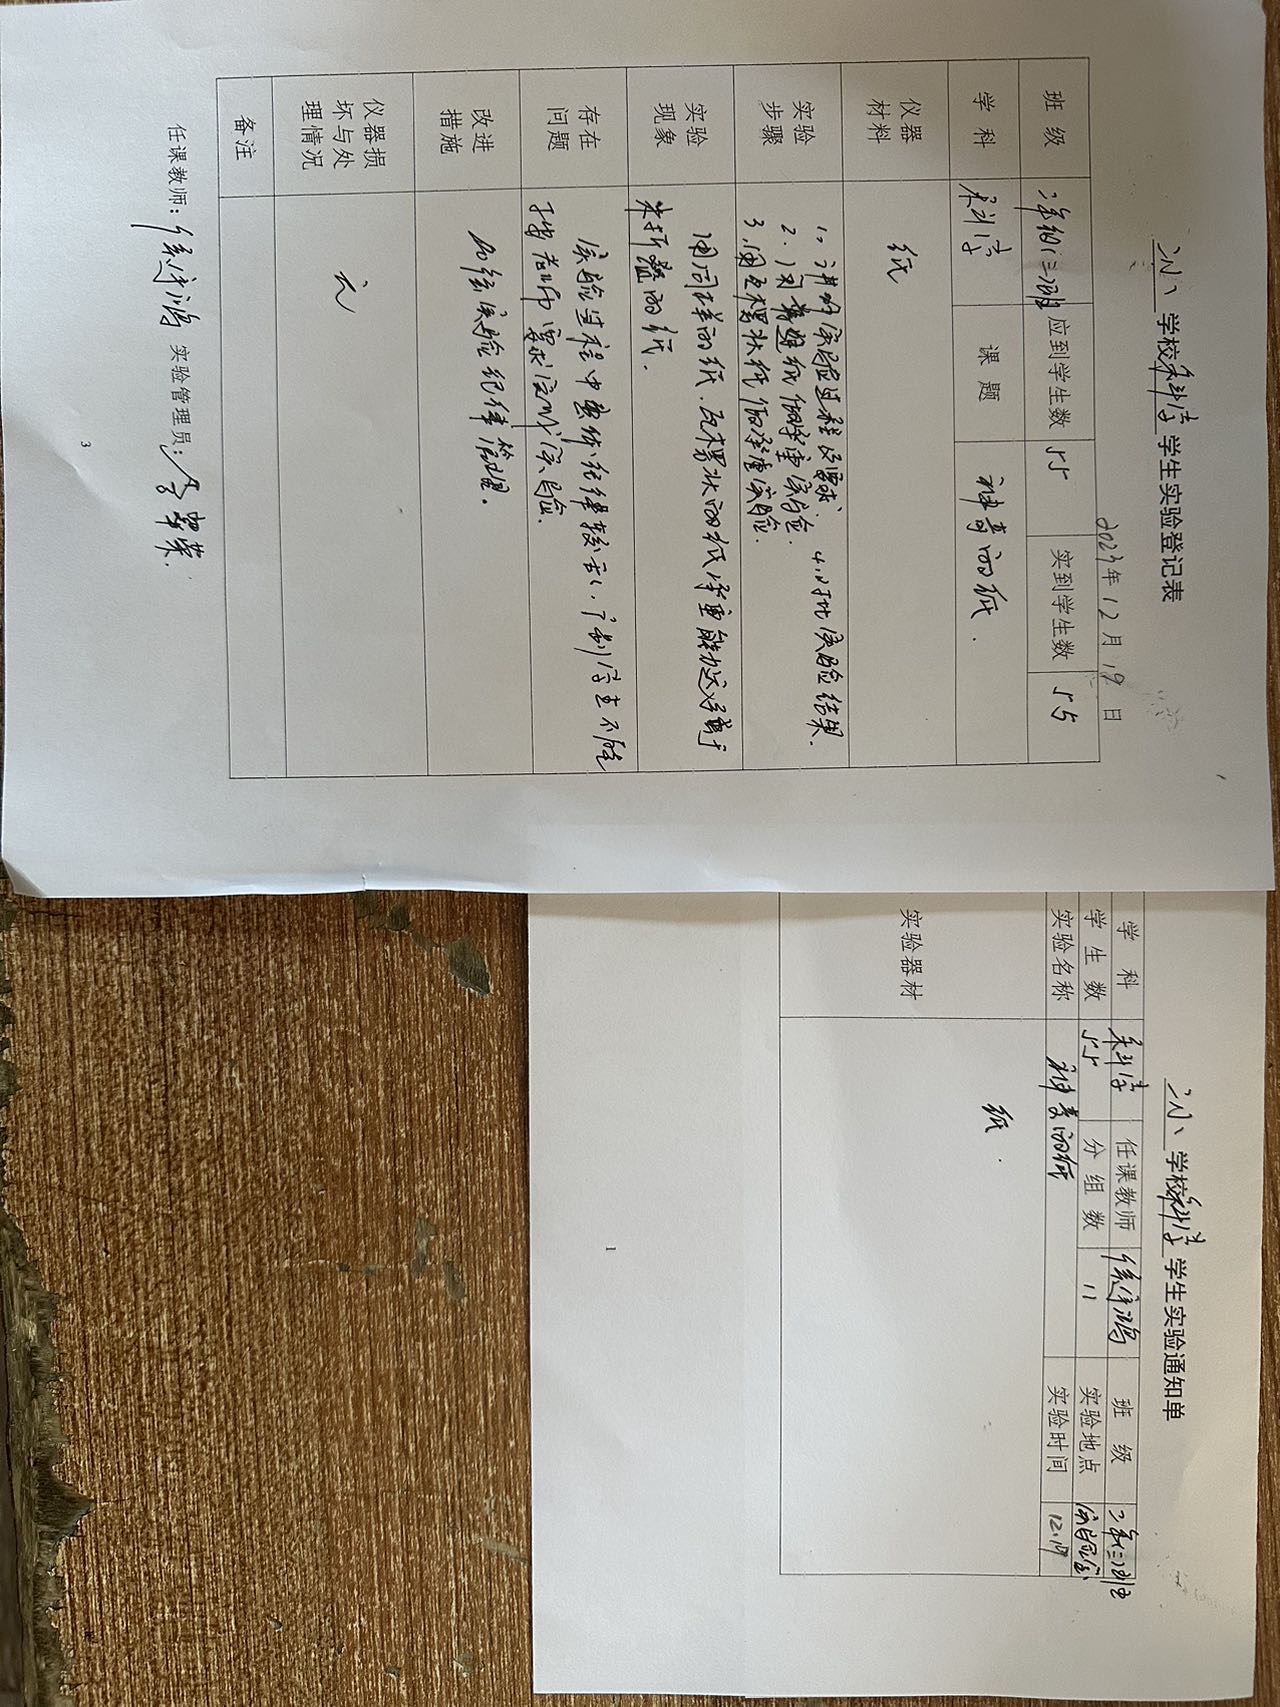 学校科学学生实验登记表
2023年12月19日
班级 二年级(二)班 应到学生数 55 实到学生数 55
学科 科学 课题 神奇的纸.
仪器材料 纸
实验步骤 1、讲解实验过程及要求. 4.对比实验结果.
2.用普通纸做承重实验.
3.用瓦楞状纸做承重实验.
实验现象 用同样的纸.瓦楞状的纸承重能力远好于
未折叠的纸.
存在问题 实验过程中整体纪律较乱,个别学生不能
按老师要求完成实验.
改进措施 加强实验纪律管理.
仪器损坏与处理情况 无
备注
任课教师: 实验管理员:
3
学校科学学生实验通知单
学科 科学 任课教师 班级 二年(二)班
学生数 55 分组数 11 实验地点 实验室
实验名称 神奇的纸 实验时间 12.19
实验器材 纸.
1